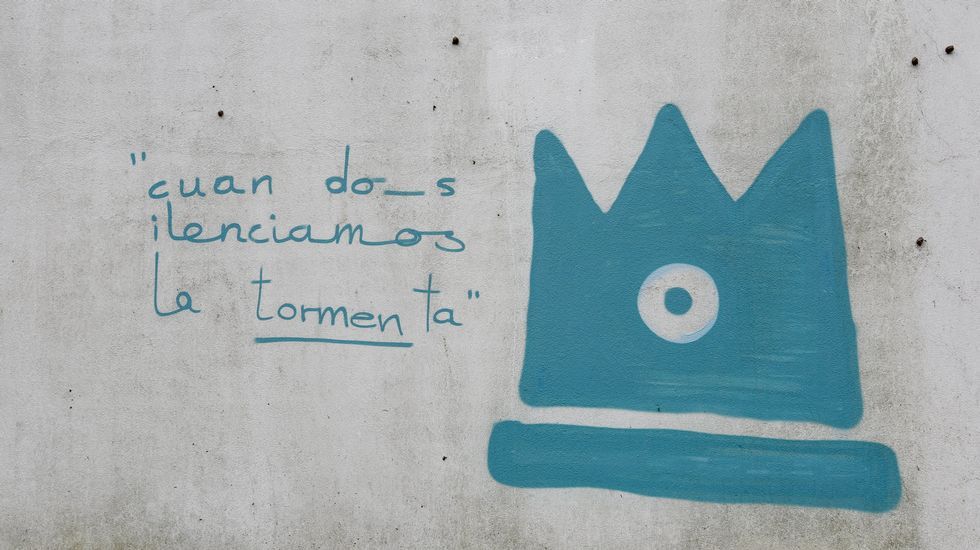 "cuan do_s
ilenciamos
la tormen ta"